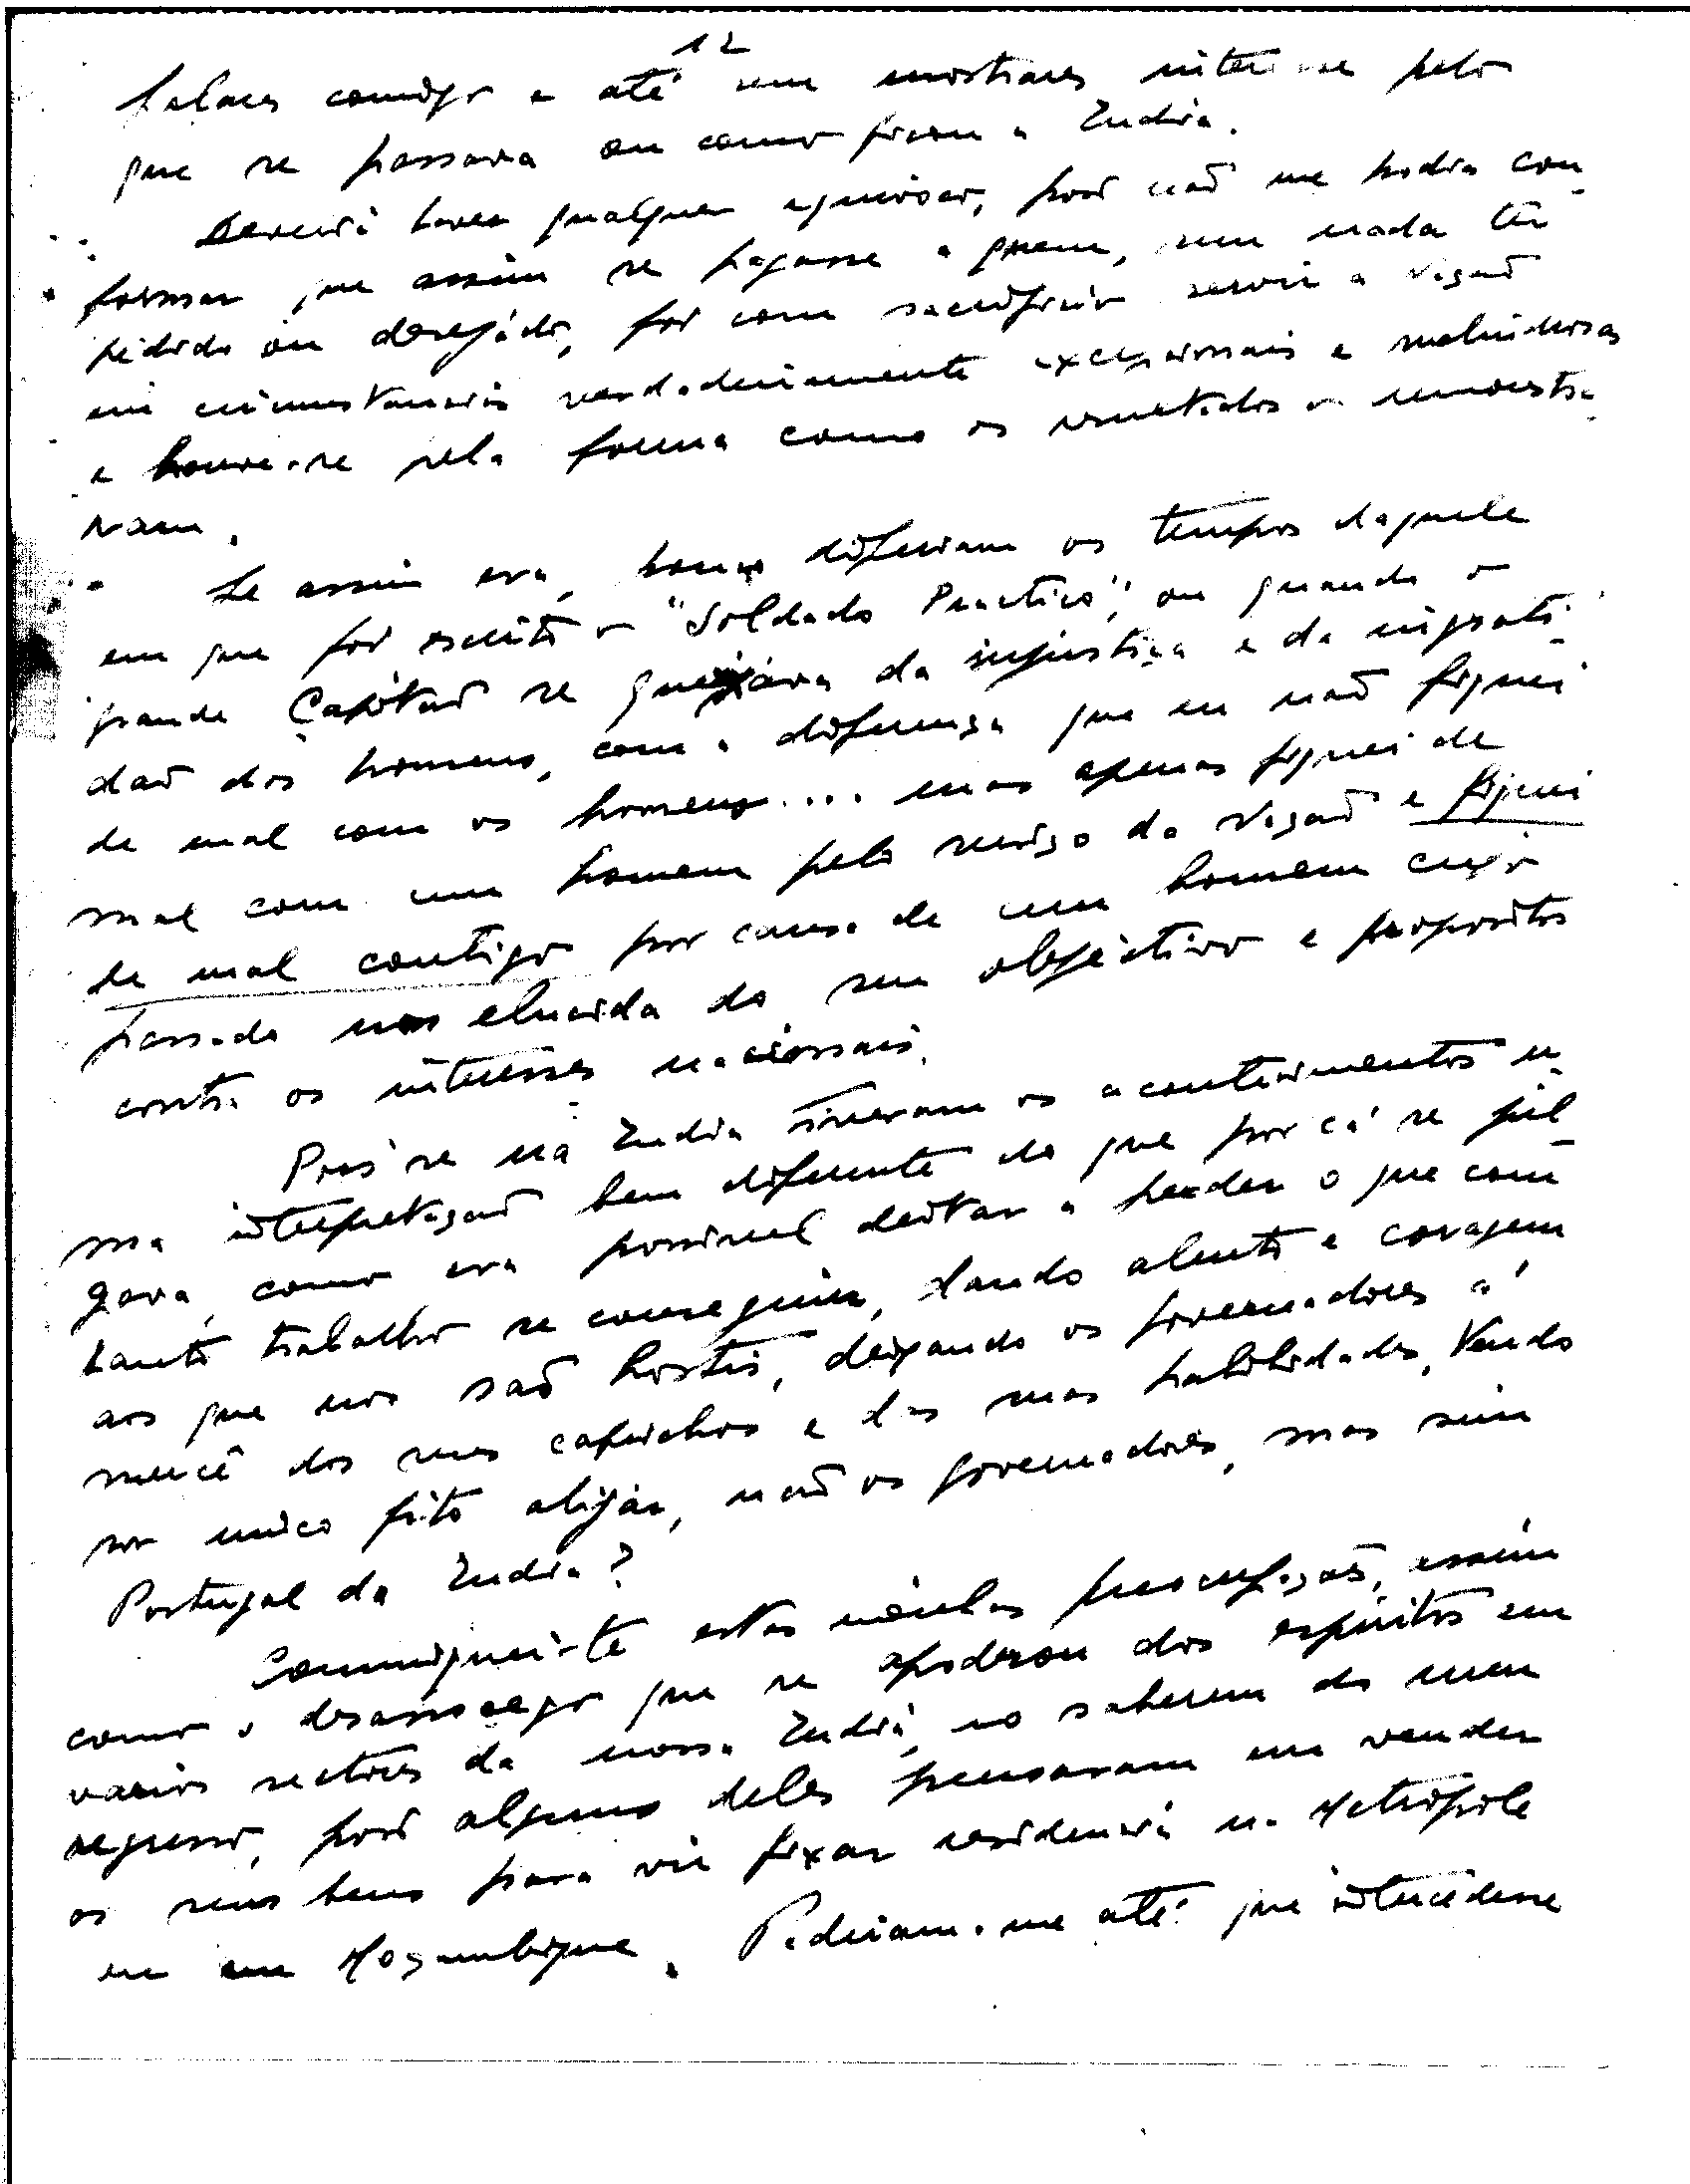 12
falares comigo e até sem mostrares interesse pelo
que se passava ou como ficou a India.
Deveria haver qualquer equivoco, pois não me podia con-
formar que assim se pagasse a quem, sem nada ter
pedido ou desejado, foi com sacrificio servir a Nação
em circunstancias verdadeiramente excepcionais e melindrosas
e houve-se pela forma como os resultados o demonstra-
vam.
Se assim era, pouco diferiam os tempos daquele
em que foi escrito o "Soldado Practico", ou quando o
grande Capitão se queixava da injustiça e da ingrati-
dão dos homens, com a diferença que eu não fiquei
de mal com os homens.... mas apenas fiquei de
mal com um homem pelo serviço da Nação e fiquei
de mal contigo por causa de um homem cujo
passado nos elucida do seu objectivo e propositos
contra os interesses nacionais.
Pois se na India tiveram os acontecimentos u-
ma interpretação bem diferente do que por cá se jul-
gava, como era possivel deitar a perder o que com
tanto trabalho se conseguiu, dando alento e coragem
aos que nos são hostis, deixando os governadores á
mercê dos seus caprichos e das suas habilidades, tendo
por unico fito alijar, não os governadores, mas sim
Portugal da India?
Comuniquei-te estas minhas preocupações, assim
como o desassocego que se apoderou dos espiritos em
varios sectores da nossa India, ao saberem do meu
regresso, pois alguns deles pensaram em vender
os seus bens para vir fixar residencia na Metropole
ou em Moçambique. Pediram-me até que intercedesse